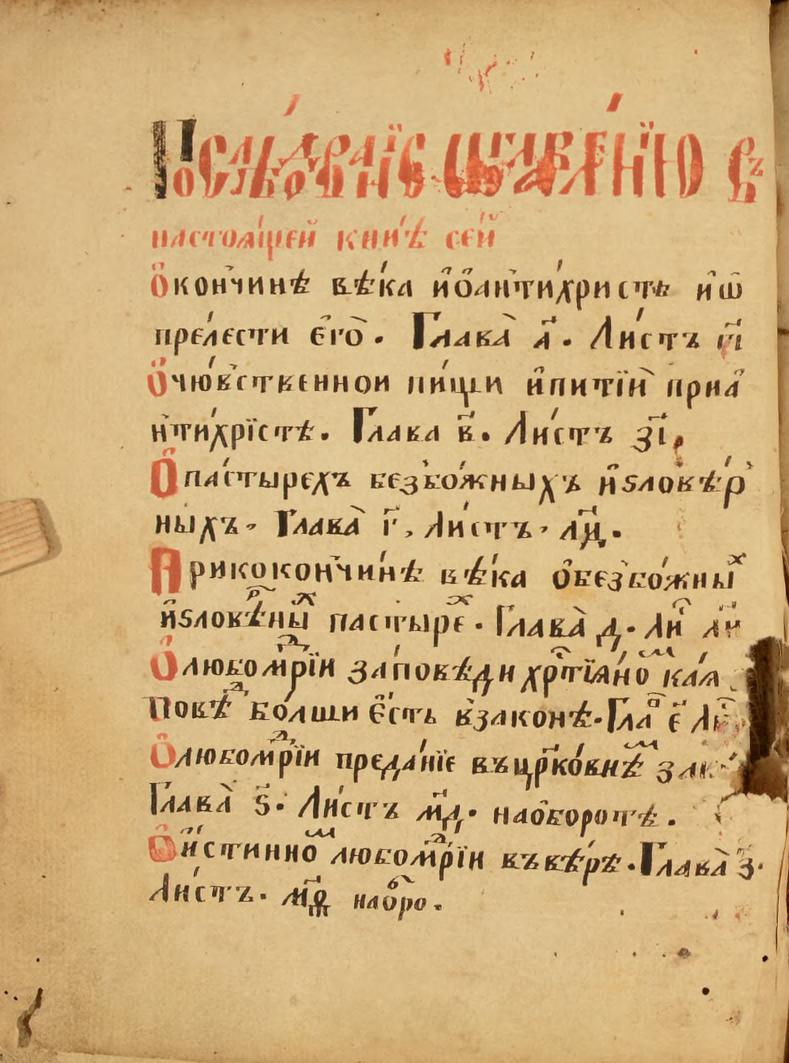 Послѣдованїе ѡглавленїю въ
настоѧщей кни́гѣ сей
Ѽ кончинѣ вѣка и҆ о҆ антихристѣ и҆ ѡ҆
прелести є҆го̀. Глава̀ а҃. Листъ
Ѽ чювственной пищи и҆ питїи прї а
нтихрїстѣ. Глава в҃. Листъ зі҃.
Ѽ пастырехъ безбожныхъ и҆ ѕловѣр
ныхъ. Глава̀ г҃, Листъ. лд҃.
При кокончинѣ вѣка о҆ безбожныⷯ
и҆ ѕловѣрныⷯ пастыреⷯ. Глава̀ д҃. Лиⷭ
Ѽ любомⷣрїи заповѣди хрⷭтїѧноⷨ каѧ
повѣⷣ болши є҆сть в законѣ. Глаⷡ є҃
Ѽ любомⷣрїи преданїе въ црковнѣⷨ
Глава̀ ѕ҃. Листъ мд҃. на о҆боротѣ.
Ѽ истинноⷨ любомⷣрїи въ вѣрѣ. Глава̀ з҃.
Листъ. наоⷠро.